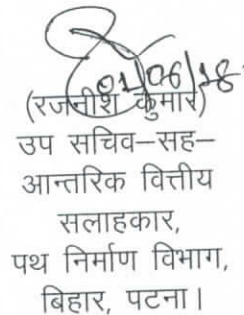 01/06/18
(रजनीश कुमार)
उप सचिव-सह-
आन्तरिक वित्तीय
सलाहकार,
पथ निर्माण विभाग,
बिहार, पटना।